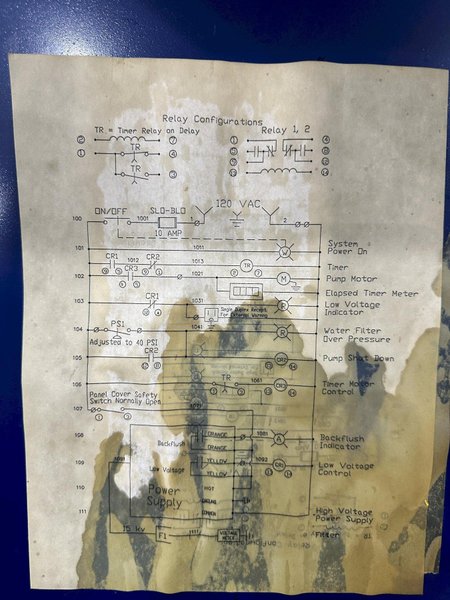 Relay Configurations
TR = Timer Relay on Delay
Relay 1, 2
2 7
1 TR 4
TR 3
120 VAC
ON/OFF SLO-BLO
100 1 2
10 AMP
1011
101 W System Power On
CR1 1012 CR2 1013 TR Timer
102 CR3 1021 M Pump Motor
Elapsed Timer Meter
103 CR1 1031 R Low Voltage Indicator
Single Duplex Recept.
For External Wiring
1041
104 PS1 R Water Filter Over Pressure
Adjusted to 40 PSI
105 CR2 CR2 Pump Shut Down
106 TR 1061 CR3 Timer Motor Control
Panel Cover Safety
Switch Normally Open
107
108 Backflush ORANGE 1081 A Backflush Indicator
ORANGE
109 Low Voltage YELLOW 1092 CR1 Low Voltage Control
1091 YELLOW
110 Power Supply HOT
111 High Voltage Power Supply
15 kv F1 1111 VOLTAGE Filter